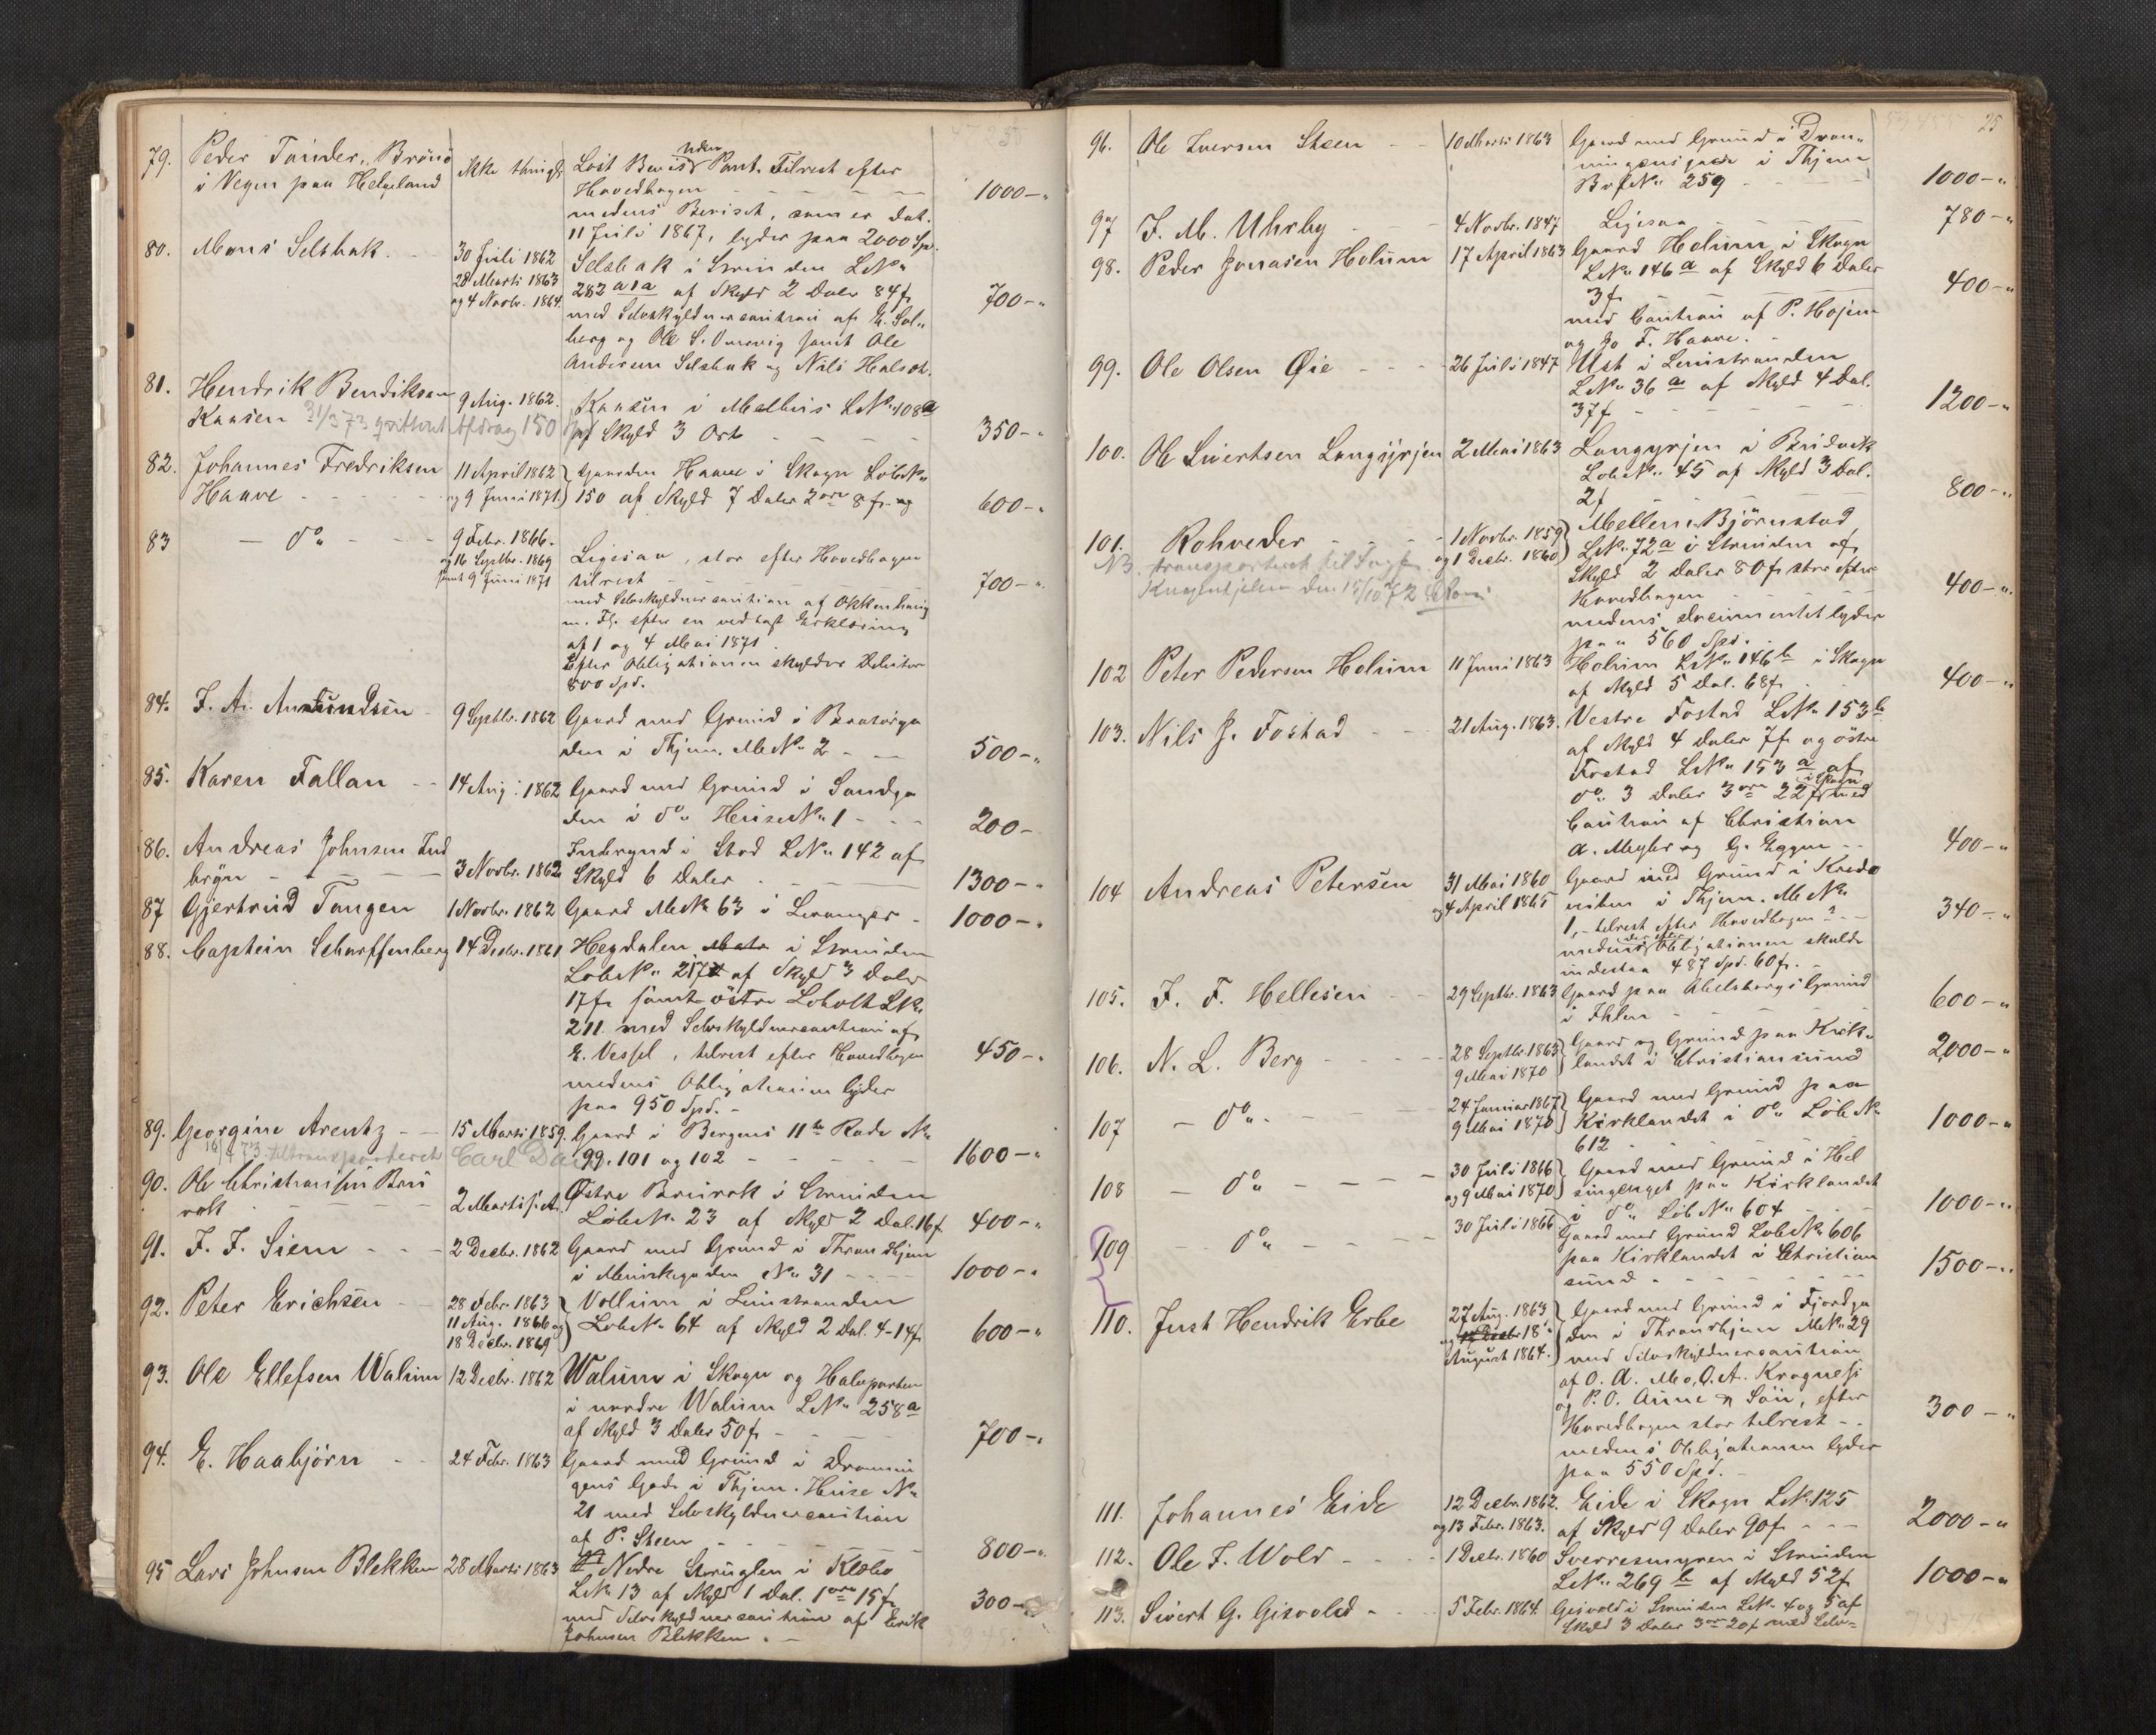 79. Peder Tander, Brönö
i Vegen paa Helgeland
ikke thingl.
Löst Bevis uden Pant. Tilrest efter
Hovedbogen - - - 1000-"
medens Beviset, som er dat.
11 Juli 1867, lyder paa 2000 Spd.
80. Mons Selsbak - 30 Juli 1862
28 Marts 1863
og 4 Novbr. 1864.
Selsbak i Strinden LNo
282 a1a af Skyld 2 Daler 84 f. 700-"
med Selvskyldnercaution af E. Sol-
berg og Ole S. samt Ole
Andersen Selsbak og Nils Halset.
81. Hendrik Bendiksen
Kaasen 31/3 73 Afdrag 150
9 Aug. 1862.
Kaasen i Melhus LNo 108a
af Skyld 3 Ort - - - 350-"
82. Johannes Fredriksen
Haave - - -
11 April 1862
og 9 Juni 1871.
Gaarden Haave i Skogn LöbeNo
150 af Skyld 7 Daler 2 ort 8 f. og 600-"
83 - do - 9 Febr. 1866.
og 16 Septbr. 1869
samt 9 Juni 1871
Ligesaa, stor efter Hovedbogen
tilrest - - - 700-"
med Selvskyldnercaution af Okkenhaug
m. Fl. efter en vedlagt Erklæring
af 1 og 4 Mai 1871.
Efter Obligationen skylder Debitor
800 Spd.
84. J. A. Amundsen - 9 Septbr. 1862
Gaard med Grund i
den i Thjem. MNo 2 - - 500-"
85. Karen Fallan - - 14 Aug. 1862
Gaard med Grund i Sandga
den i do HuseNo 1 - - - 200-
86. Andreas Johnsen Ind
bryn - - - 3 Novbr. 1862
Indbryn i Stod LNo 142 af
Skyld 6 Daler - - - 1300-"
87 Gjertrud Tangen 1 Novbr. 1862
Gaard MNo 63 i Levanger - 1000-"
88. Captein Scharffenberg 14 Decbr. 1861
Hegdalen i Strinden
LöbeNo 217 af Skyld 3 Daler
17 f. samt östre Loholt LNo
211. med Selvskyldnercaution af
E. Vessel, tilrest efter Hovedbogen 450-"
medens Obligationen lyder
paa 950 Spd. -
89. Georgine Arentz - - 15 Marts 1859.
16/4 73. transporteret Carl
Gaard i Bergens 11te Rode No
99. 101 og 102 - - - 1600-"
90. Ole Christiansen Bru
rok - - - 2 Marts s. A.
Østre Brurok i Strinden
LöbeNo 23 af Skyld 2 Dal. 16 f. 400-"
91. F. F. Siem - - - 2 Decbr. 1862
Gaard med Grund i Throndhjem
i Munkegaden No 31 - - - 1000-"
92. Peter Erichsen - - 28 Febr. 1863
11 Aug. 1866 og
18 Decbr. 1869
Vollum i Leinstranden
LöbeNo 64 af Skyld 2 Dal. 4-14 f. 600-"
93. Ole Ellefsen Walum 12 Decbr. 1862
Walum i Skogn og Halvparten
i nordre Walum LNo 258a
af Skyld 3 Daler 50 f. - - 700-"
94. E. Haabjörn - - 24 Febr. 1863
Gaard med Grund i Dronnin
gens Gade i Thjem. Huse No
21 med Selvskyldnercaution
af P. Steen - - - 800-"
95 Lars Johnsen Blekken 28 Marts 1863
Nedre Struglen i Klæbo
LNo 13 af Skyld 1 Dal. 1 ort 15 f. 300-
med Selvskyldnercaution af Erik
Johnsen Blekken. -
25
96. Ole Iversen Steen - - 10 Marts 1863
Gaard med Grund i Dron-
ningensgade i Thjem
BrfNo 259 - - - 1000-"
97 F. M. Uhrby - - 4 Novbr. 1847
Ligesaa - - - 780-"
98. Peder Jonasen Holum 17 April 1863
Gaard Holum i Skogn
LNo 146a af Skyld 6 Daler
3 f. - - - 400-"
med Caution af P. Hojem
og Jo F. Haave.
99. Ole Olsen Øie - - - 26 Juli 1847
Ust i Leinstranden
LNo 36a af Skyld 4 Dal.
37 f. - - - 1200-"
100. Ole Sivertsen Langörjen 2 Mai 1863
Langörjen i Budvik
LöbeNo 45 af Skyld 3 Dal.
2 f. - - - 800-"
101. Rohweder - - - 1 Novbr. 1859
og 1 Decbr. 1860
NB. transporteret til
den 15/10 72
Mellem Björnstad
LNo 72a i Strinden af
Skyld 2 Daler 80 f. stor efter
Hovedbogen - - - 400-"
medens Documentet lyder
paa 560 Spd.
102 Peter Pedersen Holum 11 Juni 1863
Holum LNo 146b i Skogn
af Skyld 5 Dal. 68 f. - - 400-"
103. Nils J. Fostad - - 21 Aug. 1863.
Vestre Fostad LNo 153b
af Skyld 4 Daler 7 f. og östre
Fostad LNo 153a af
do 3 Daler 3 ort 22 f. i Skogn med
Caution af Christian
A. Mygler og G. Eggen - - 400-"
104 Andreas Petersen 31 Mai 1860
og 4 April 1865
Gaard med Grund i
i Thjem. MNo
1, - tilrest efter Hovedbogen ? - - 340-"
medens der efter Obligationen skulde
indestaa 487 Spd. 60 f. -
105. F. F. Hellesen - - 29 Septbr. 1863
Gaard paa Abelsborgs Grund
i Ihlen - - - 600-"
106. N. L. Berg - - - 28 Septbr. 1863
9 Mai 1870
Gaard og Grund paa Kirk-
landet i Christiansund 2000-"
107 - do - - - 24 Januar 1867
9 Mai 1870
Gaard med Grund paa
Kirklandet i do LöbNo
612 - - - 1000-"
108 - do - - - 30 Juli 1866
og 9 Mai 1870
Gaard med Grund i Hel
singenget paa Kirklandet
i do LöbNo 604 - - 1000-"
109 - do - - - 30 Juli 1866
Gaard med Grund LöbeNo 606
paa Kirklandet i Christian
sund - - - 1500-"
110. Just Hendrik Erbe 27 Aug. 1863
og 18
August 1864.
Gaard med Grund i Fjordga
den i Throndhjem MNo 29
med Selvskyldnercaution
af O. A. Moe, O. A. Kragnes
og P. O. Aune & Sön, efter
Hovedbogen stor tilrest - - 300-"
medens Obligationen lyder
paa 550 Spd. -
111. Johannes Eide 12 Decbr. 1862.
og 13 Febr. 1863.
Eide i Skogn LNo 125
af Skyld 9 Daler 90 f. - - - 2000-"
112. Ole F. Wold - - - 1 Decbr. 1860
Sverresmyren i Strinden
LNo 269b af Skyld 52 f. 1000-"
113. Sivert G. Gisvold - - 5 Febr. 1864.
Gisvold i Strinden LNo 4 og 5 af
Skyld 3 Daler 3 ort 20 f. med Selv=